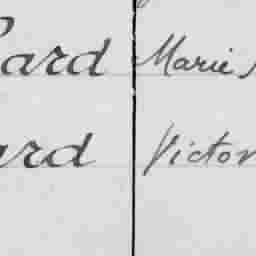 ard Marie
ard Victor